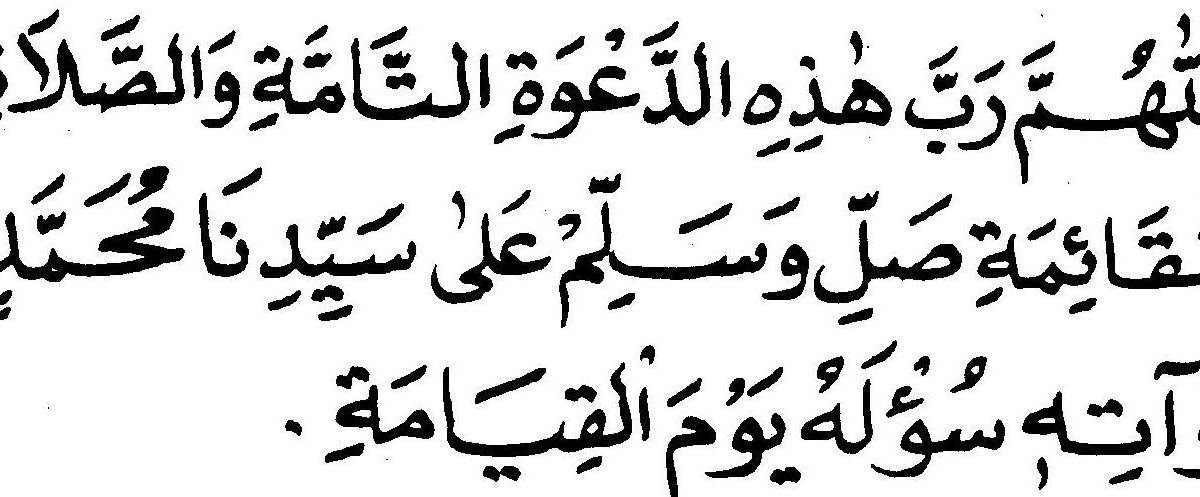 لّٰهُمَّ رَبَّ هٰذِهِ الدَّعْوَةِ التَّامَّةِ وَالصَّلَاةِ
لْقَائِمَةِ صَلِّ وَسَلِّمْ عَلىٰ سَيِّدِنَا مُحَمَّدٍ
وَآتِهٖ سُؤْلَهُ يَوْمَ الْقِيَامَةِ .